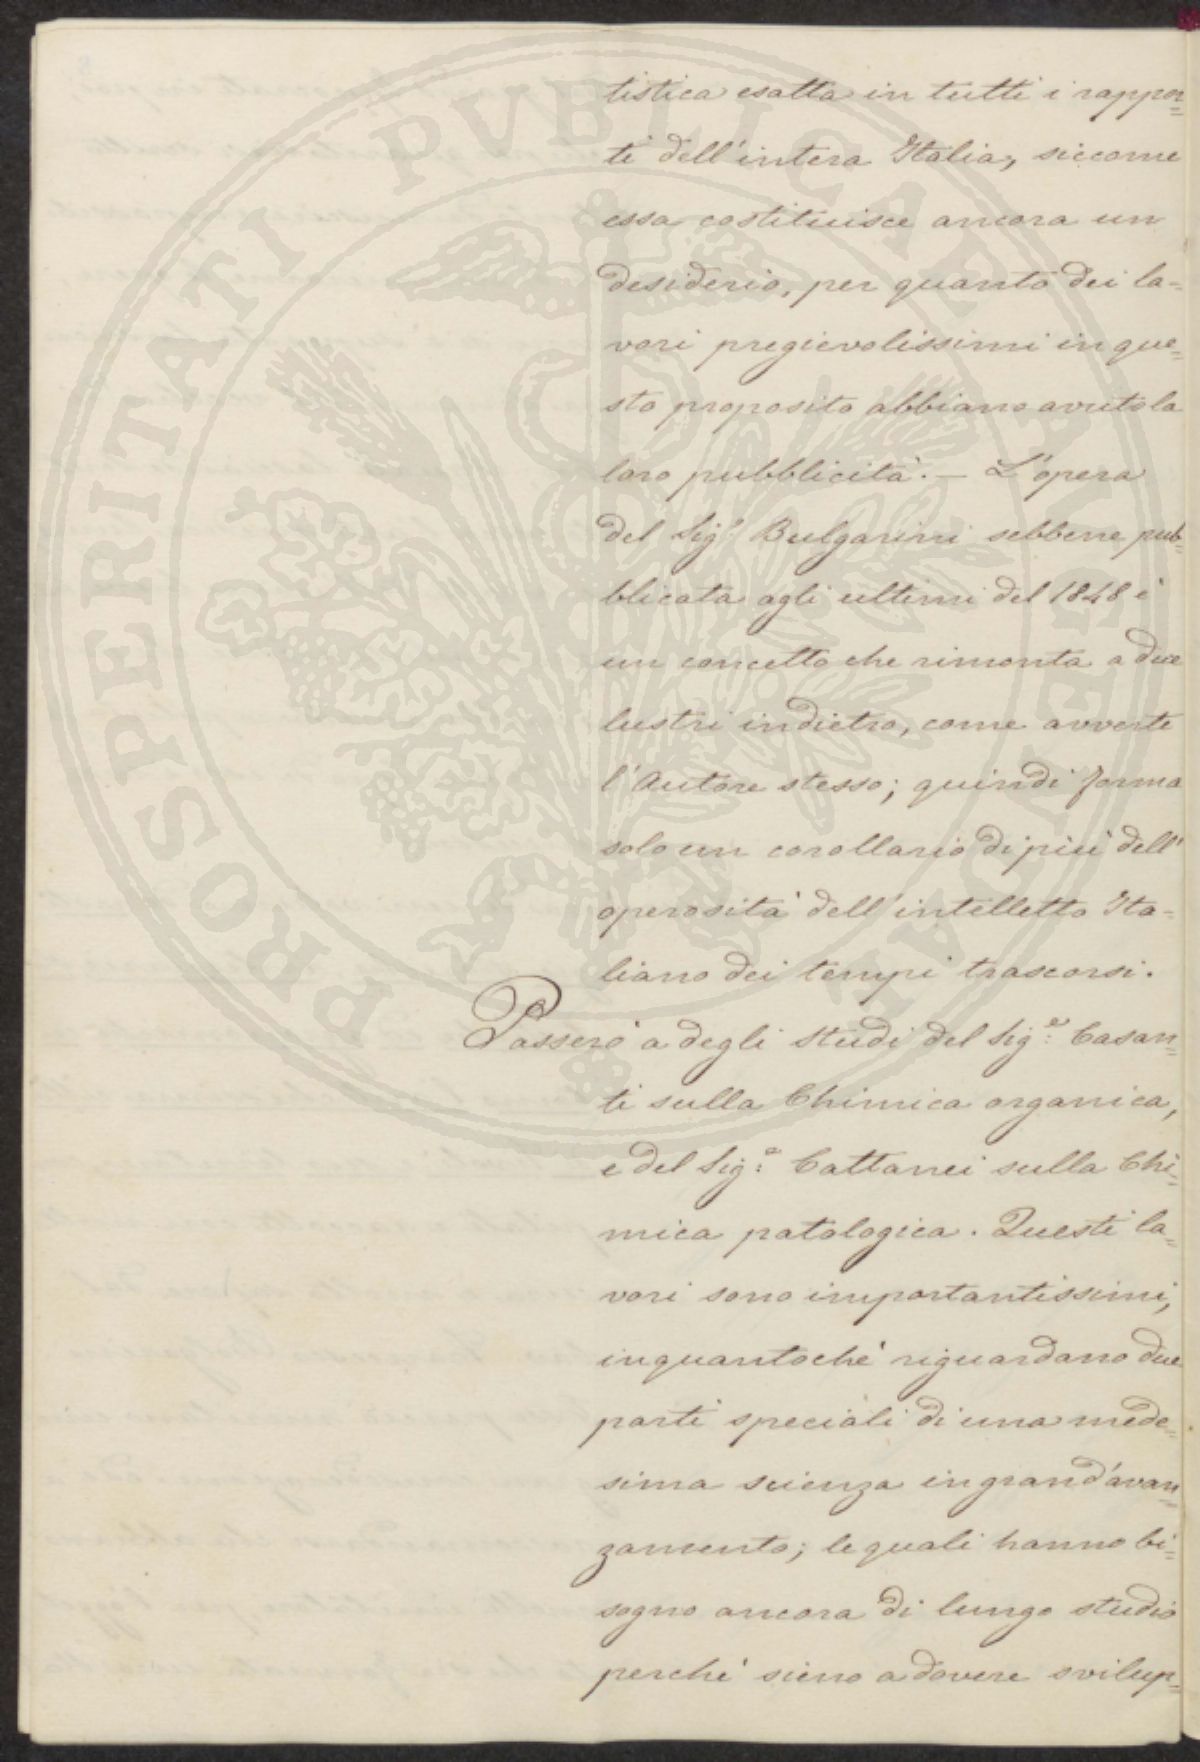 tistica esatta in tutti i rappor=
ti dell'intera Italia, siccome
essa costituisce ancora un
desiderio, per quanto dei la=
vori pregievolissimi in que=
sto proposito abbiano avuto la
loro pubblicità. — L'opera
del Sig.r Bulgarini sebbene pub=
blicata agli ultimi del 1848 è
un concetto che rimonta a due
lustri indietro, come avverte
l'Autore stesso; quindi forma
solo un corollario di più dell'
operosità dell'intelletto Ita=
liano dei tempi trascorsi.
Passerò a degli studi del Sig.e Casan=
ti sulla Chimica organica,
e del Sig.e Cattanei sulla Chi=
mica patologica. Questi la=
vori sono importantissimi,
inquantoché riguardano due
parti speciali di una mede=
sima scienza in grand'avan=
zamento; le quali hanno bi=
sogno ancora di lungo studio
perché sieno a dovere svilup=
PROSPERITATI PVBLICAE AVGENDAE